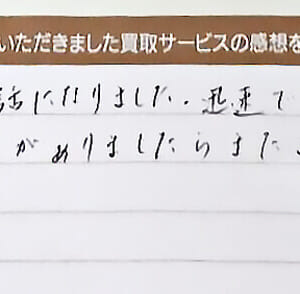 いただきました買取サービスの感想を
話になりました。迅速で
がありましたらまた